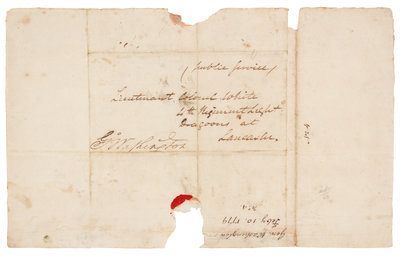 (public service)
Lieutenant Colonel White
4th Regiment Light
Dragoons at
Lancaster
Go Washington
Gen. Washington
Feby 10, 1779